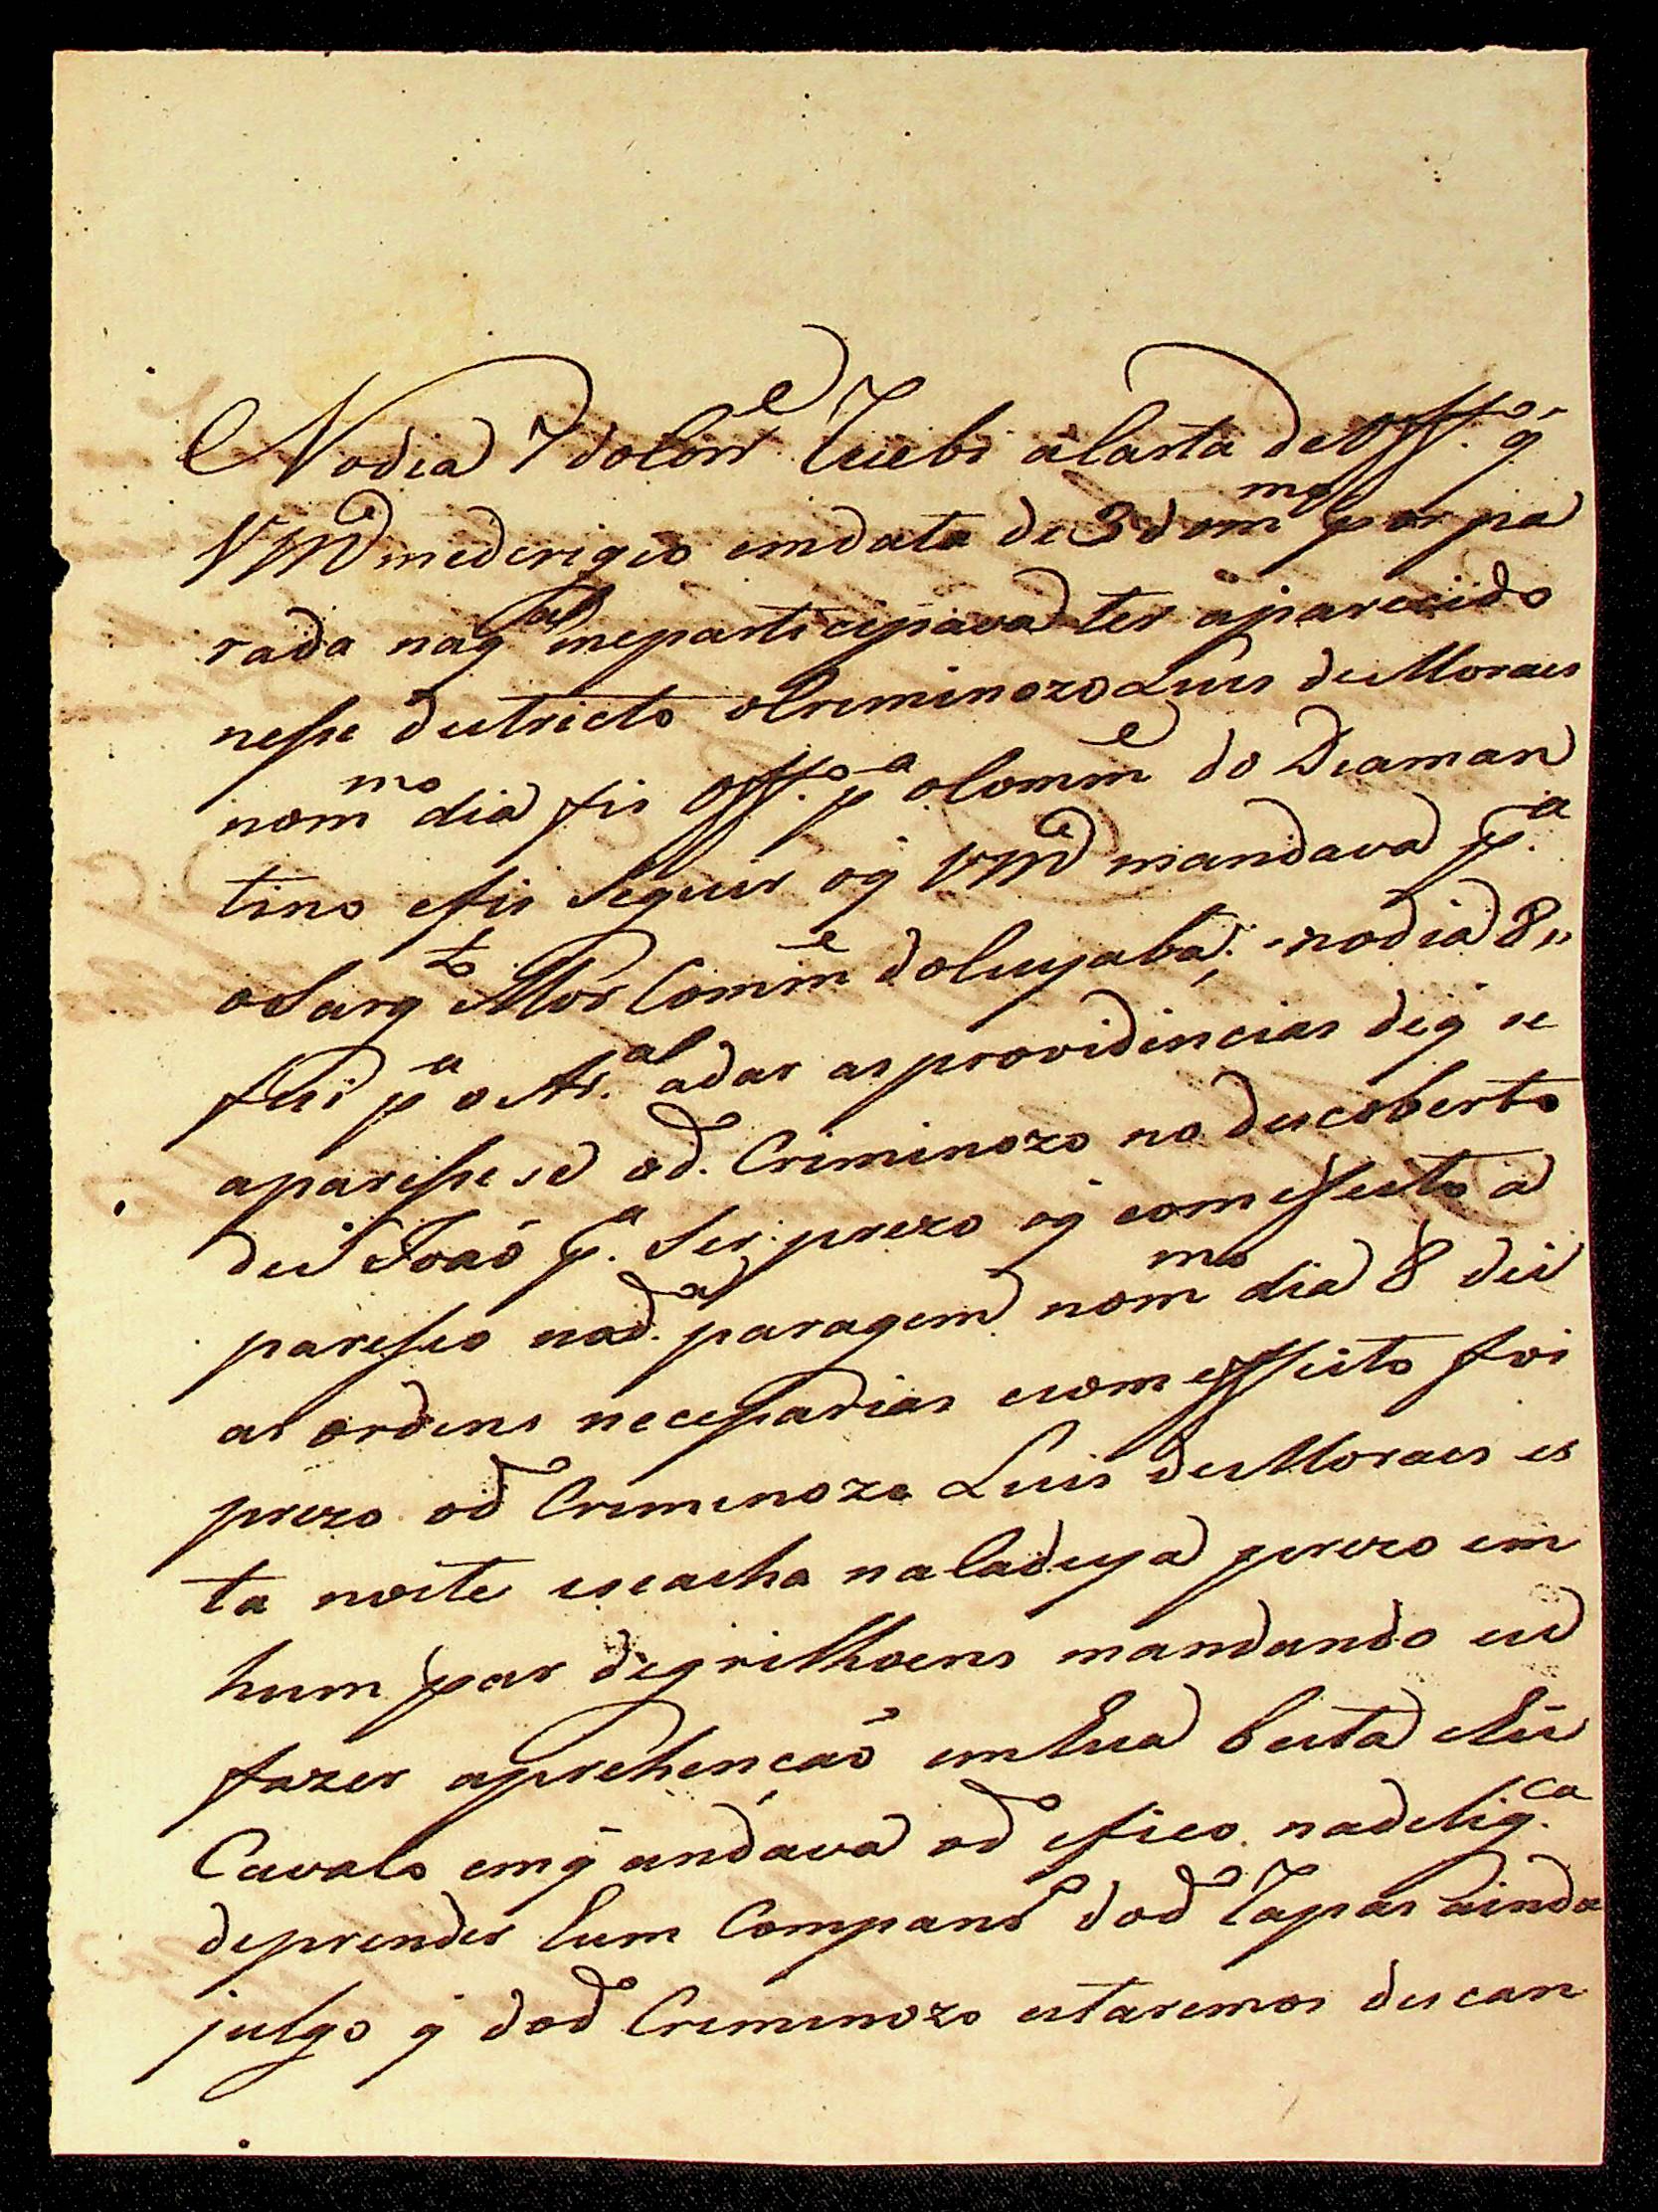 No dia 7 do Corr.e Recebi a Carta de Off.o q̃
VM.ce me derigio em data de 3 do m.mo por pa
rada na q.al me participava ter aparecido
nesse destricto o Criminozo Luis de Moraes
no m.mo dia fis Off.o p.a o Comm.e do Diaman
tino e fis seguir o q̃ VM.ce mandava p.a
o Sarg.to Mor Comm.e do Cuyabá; no dia 8,,
fui p.a o Ar.al a dar as providincias de q̃ se
aparesse se o d.o Criminozo no descoberto
de S João p.a ser prezo o q̃ com efeito a
paresseo na d.a paragem no m.mo dia 8 dei
as ordens necessarias e com effeito foi
prezo o d.o Criminozo Luis de Moraes es
ta noite e se acha na Cadeya prezo em
hum par de grilhoens mandando eu
fazer aprehenção em hua besta e hũ
Cavalo em q̃ andava o d.o e fico na delig.ca
de prender hum Companr.o do d.o Rapas ainda
julgo q̃ do d.o Criminozo estaremos descan